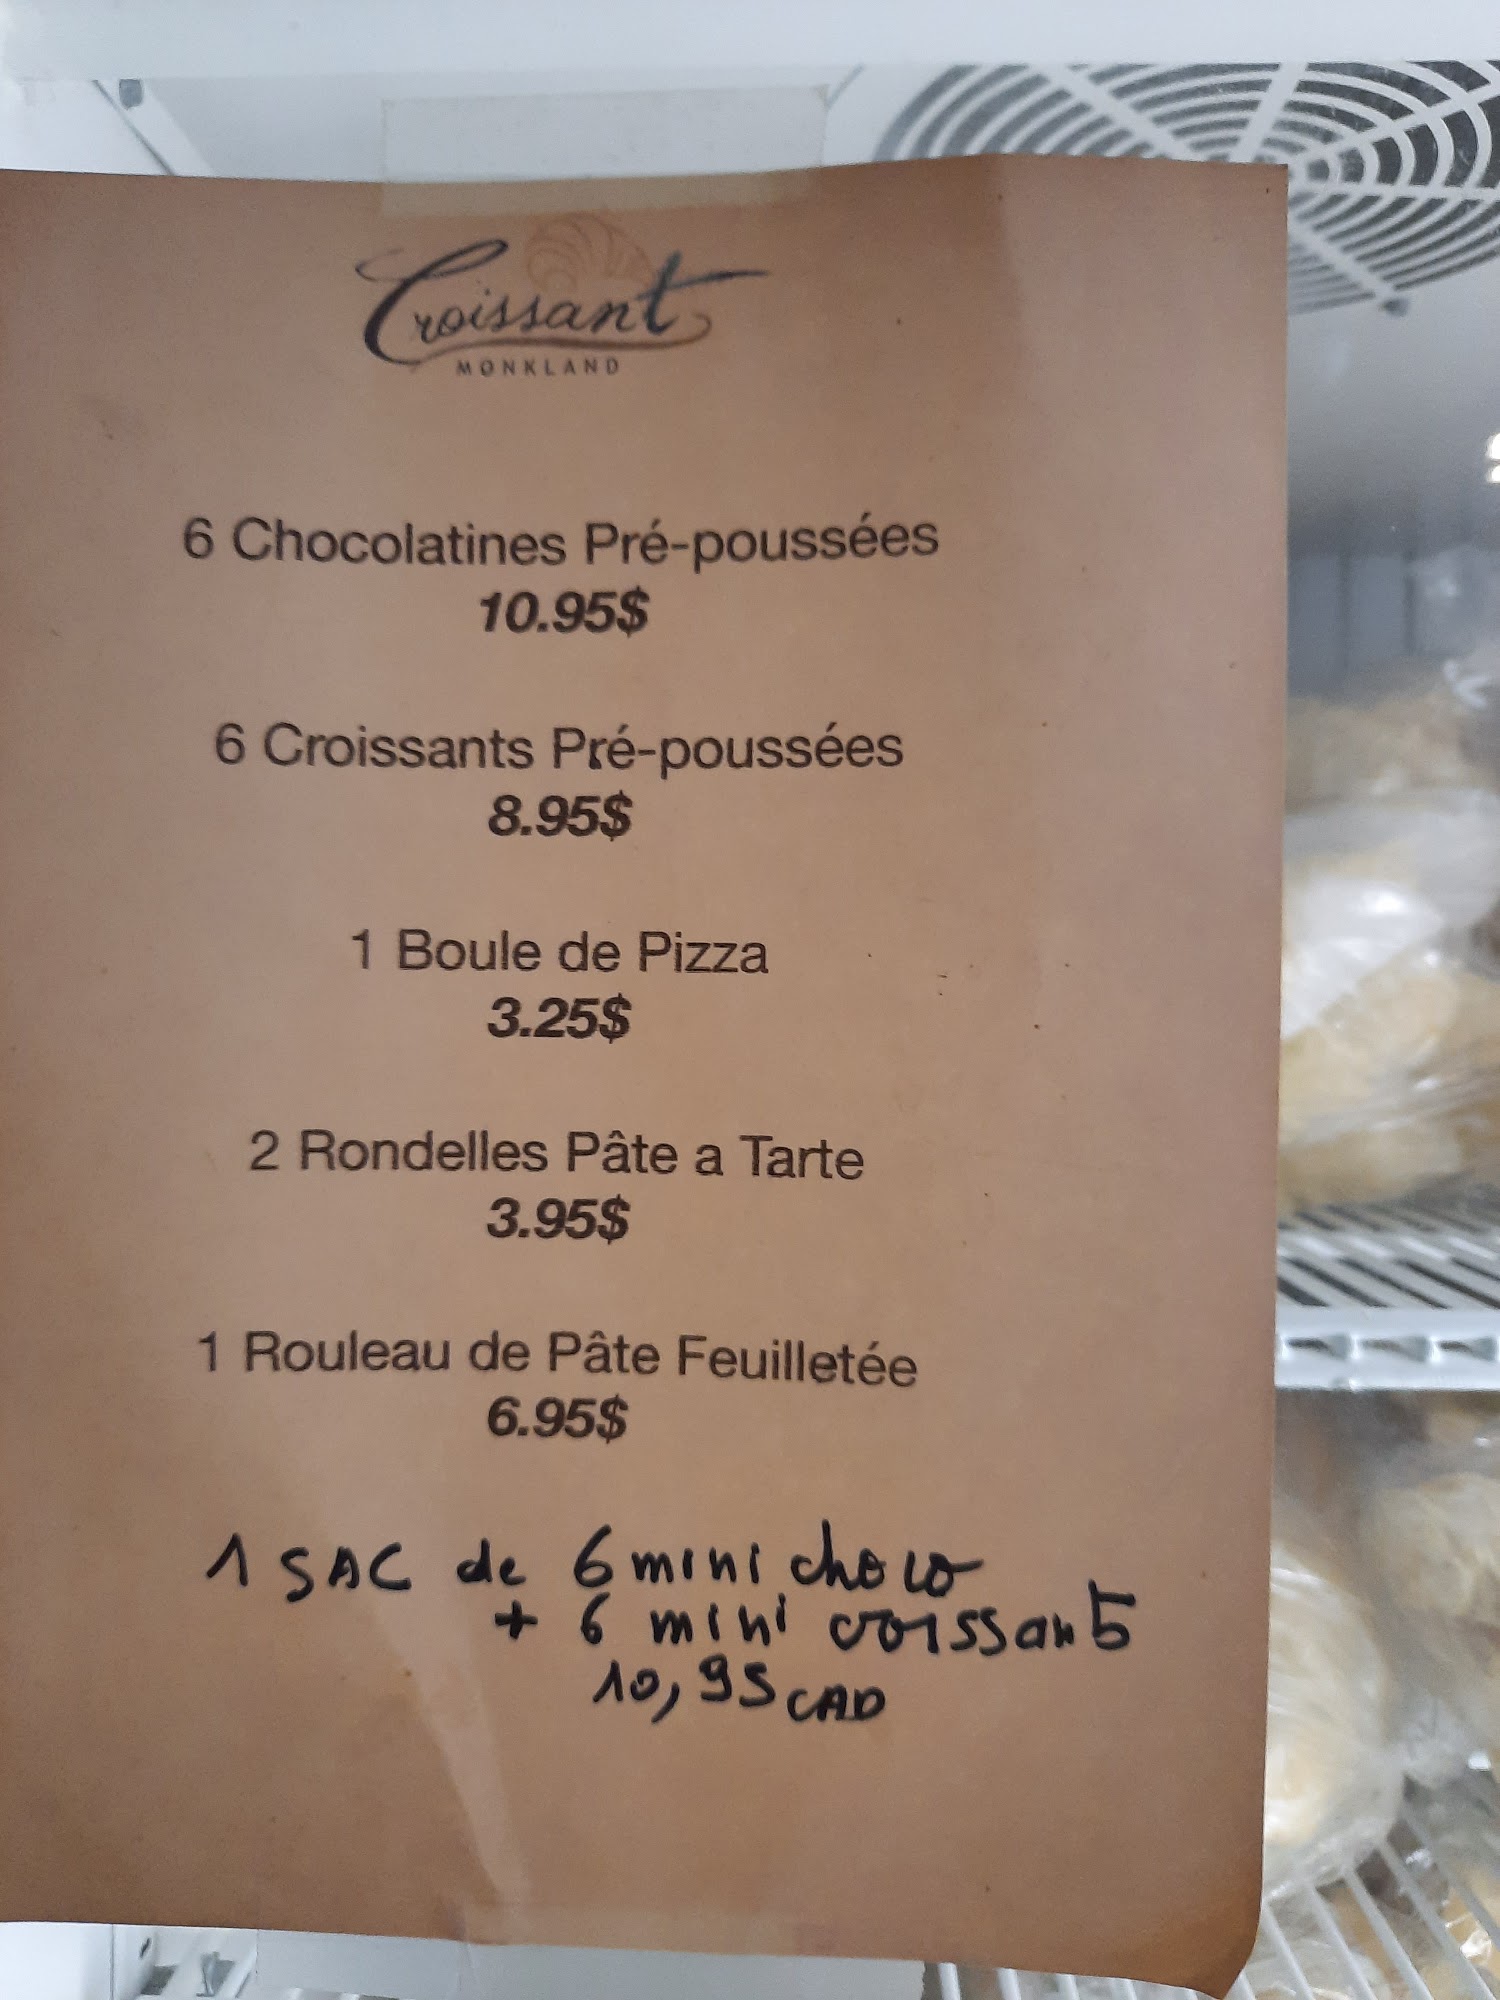 Croissant
MONKLAND
6 Chocolatines Pré-poussées
10.95$
6 Croissants Pré-poussées
8.95$
1 Boule de Pizza
3.25$
2 Rondelles Pâte a Tarte
3.95$
1 Rouleau de Pâte Feuilletée
6.95$
1 SAC de 6 mini choco
+ 6 mini croissants
10,95 CAD